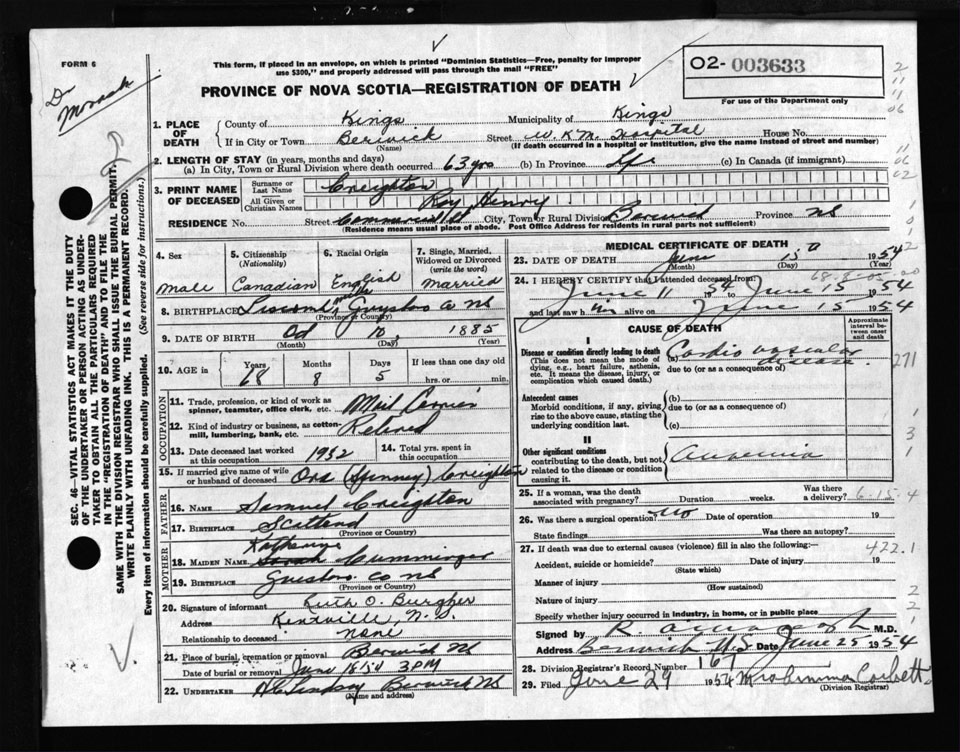 FORM 6
This form, if placed in an envelope, on which is printed "Dominion Statistics—Free, penalty for improper
use $300," and properly addressed will pass through the mail "FREE"
PROVINCE OF NOVA SCOTIA—REGISTRATION OF DEATH
O2- 003633
For use of the Department only
Dr
SEC. 46—VITAL STATISTICS ACT MAKES IT THE DUTY
OF THE UNDERTAKER OR PERSON ACTING AS UNDER-
TAKER TO OBTAIN ALL THE PARTICULARS REQUIRED
IN THE "REGISTRATION OF DEATH" AND TO FILE THE
SAME WITH THE DIVISION REGISTRAR WHO SHALL ISSUE THE BURIAL PERMIT.
WRITE PLAINLY WITH UNFADING INK. THIS IS A PERMANENT RECORD.
Every item of information should be carefully supplied. (See reverse side for instructions.)
1. PLACE OF DEATH
County of Kings Municipality of Kings
If in City or Town Berwick Street W.K.M. Hospital House No.
(Name) (If death occurred in a hospital or institution, give the name instead of street and number)
2. LENGTH OF STAY (in years, months and days)
(a) In City, Town or Rural Division where death occurred 63 yrs (b) In Province (c) In Canada (if immigrant)
3. PRINT NAME OF DECEASED
Surname or Last Name Creighton
All Given or Christian Names Roy Henry
RESIDENCE No. Street Commercial St City, Town or Rural Division Berwick Province NS
(Residence means usual place of abode. Post Office Address for residents in rural parts not sufficient)
4. Sex
Male
5. Citizenship (Nationality)
Canadian
6. Racial Origin
English
7. Single, Married, Widowed or Divorced (write the word)
Married
8. BIRTHPLACE Liscomb, Guysboro Co NS
(Province or Country)
9. DATE OF BIRTH Oct 10 1885
(Month) (Day) (Year)
10. AGE in Years Months Days If less than one day old
68 8 5 hrs. or min.
OCCUPATION
11. Trade, profession, or kind of work as spinner, teamster, office clerk, etc. Mail Carrier
12. Kind of industry or business, as cotton-mill, lumbering, bank, etc. Retired
13. Date deceased last worked at this occupation 1932
14. Total yrs. spent in this occupation
15. If married give name of wife or husband of deceased Ora (Spinney) Creighton
FATHER
16. NAME Samuel Creighton
17. BIRTHPLACE Scotland
(Province or Country)
MOTHER
Katherine
18. MAIDEN NAME Sarah Cumminger
19. BIRTHPLACE Guysboro. Co NS
(Province or Country)
20. Signature of informant Ruth O. Burgher
Address Kentville, N.S.
Relationship to deceased None
21. Place of burial, cremation or removal Berwick NS
Date of burial or removal June 18/54 3 PM
22. UNDERTAKER Lindsay Berwick NS
(Name and address)
MEDICAL CERTIFICATE OF DEATH
23. DATE OF DEATH June 15 1954
(Month) (Day) (Year)
24. I HEREBY CERTIFY that I attended deceased from
June 11 1954 to June 15 1954
and last saw him alive on June 15 1954
CAUSE OF DEATH
Approximate interval between onset and death
I
Disease or condition directly leading to death
(This does not mean the mode of dying, e.g., heart failure, asthenia, etc. It means the disease, injury, or complication which caused death.)
(a) Cardio vascular disease
due to (or as a consequence of)
Antecedent causes
Morbid conditions, if any, giving rise to the above cause, stating the underlying condition last.
(b)
due to (or as a consequence of)
(c)
II
Other significant conditions
contributing to the death, but not related to the disease or condition causing it.
25. If a woman, was the death associated with pregnancy? Duration weeks. Was there a delivery?
6-15-4
26. Was there a surgical operation? No Date of operation 19
State findings Was there an autopsy?
27. If death was due to external causes (violence) fill in also the following:—
422.1
Accident, suicide or homicide? Date of injury 19
(State which)
Manner of injury
(How sustained)
Nature of injury
Specify whether injury occurred in industry, in home, or in public place
Signed by M.D.
Address Berwick NS Date June 25 1954
28. Division Registrar's Record Number 167
29. Filed June 29 1954 Corbett
(Division Registrar)